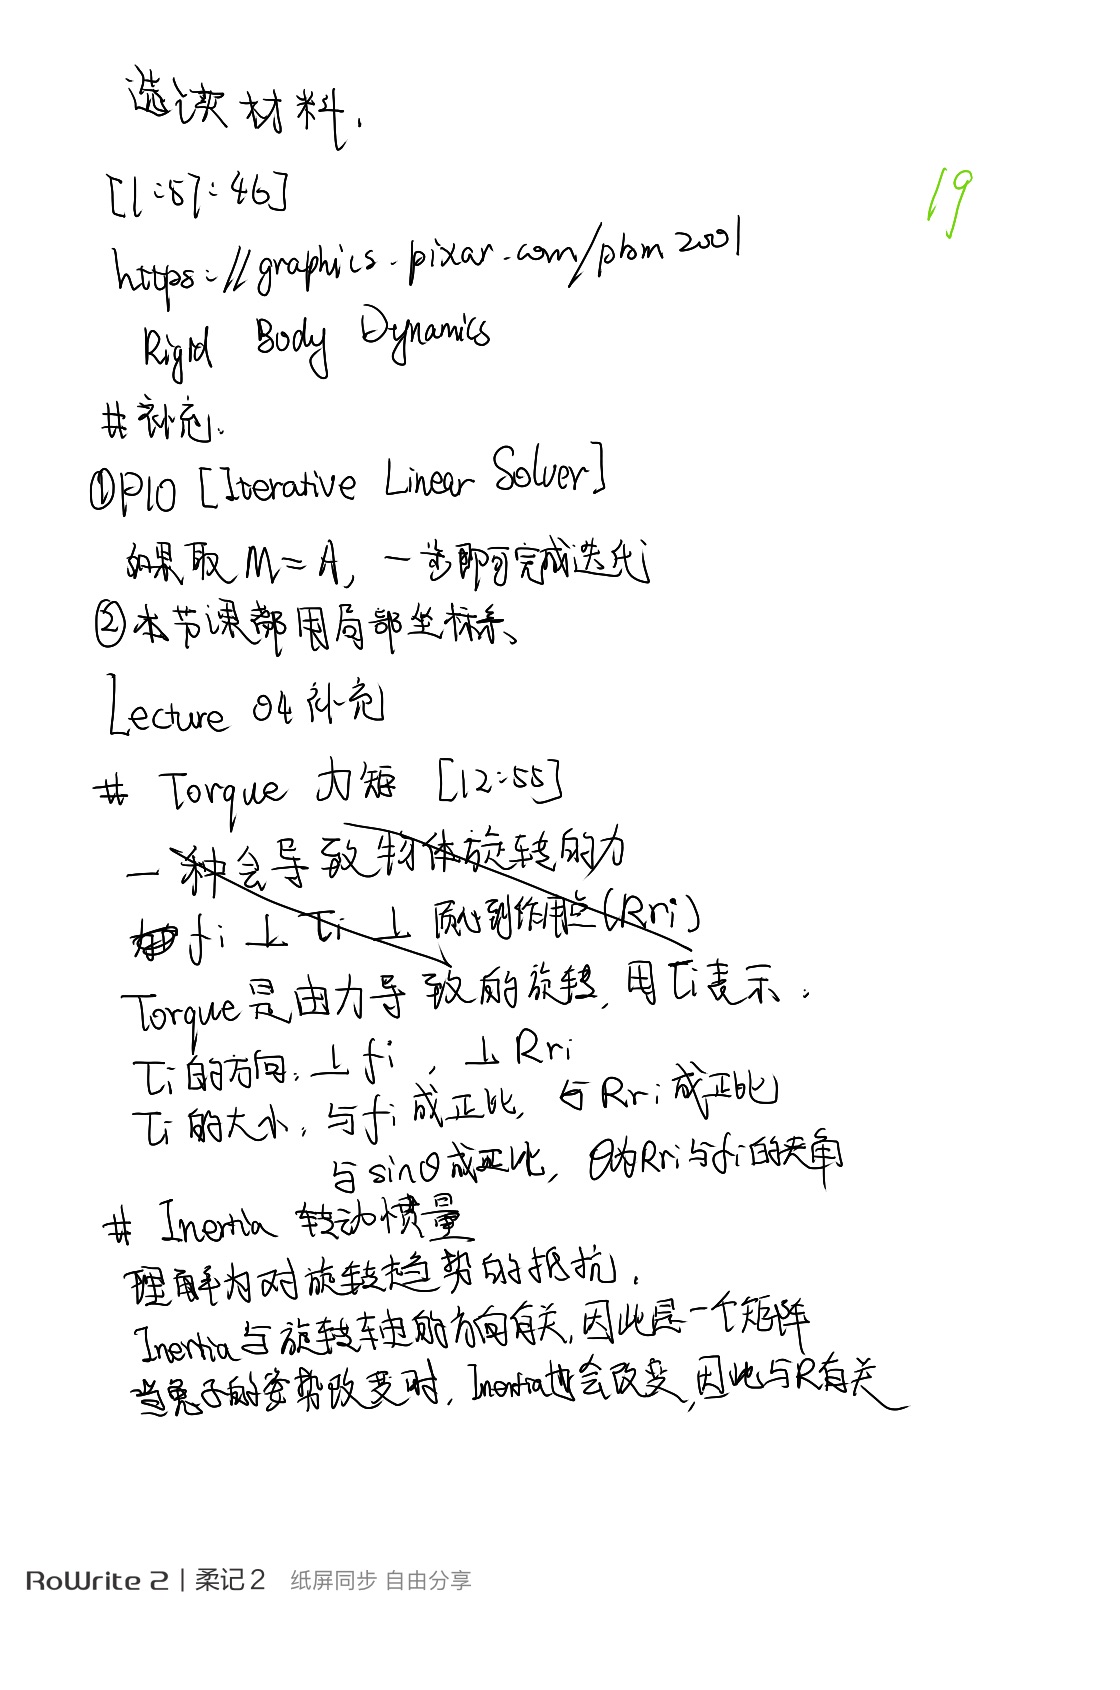 选读材料.
[1:57:46]
19
https://graphics.pixar.com/pbm2001
Rigid Body Dynamics
#补充.
①P10 [Iterative Linear Solver]
如果取 M=A, 一步即可完成迭代
②本节课都用局部坐标系、
Lecture 04 补充
# Torque 力矩 [12:55]
一种会导致物体旋转的力
fi ⊥ τi ⊥ 质心到作用点(Rri)
Torque是由力导致的旋转, 用τi表示.
τi的方向: ⊥fi , ⊥Rri
τi的大小: 与fi成正比, 与Rri成正比
与sinθ成正比, θ为Rri与fi的夹角
# Inertia 转动惯量
理解为对旋转趋势的抵抗.
Inertia与旋转轴的方向有关,因此是一个矩阵
当兔子的姿势改变时, Inertia也会改变,因此与R有关
RoWrite 2 | 柔记2 纸屏同步 自由分享